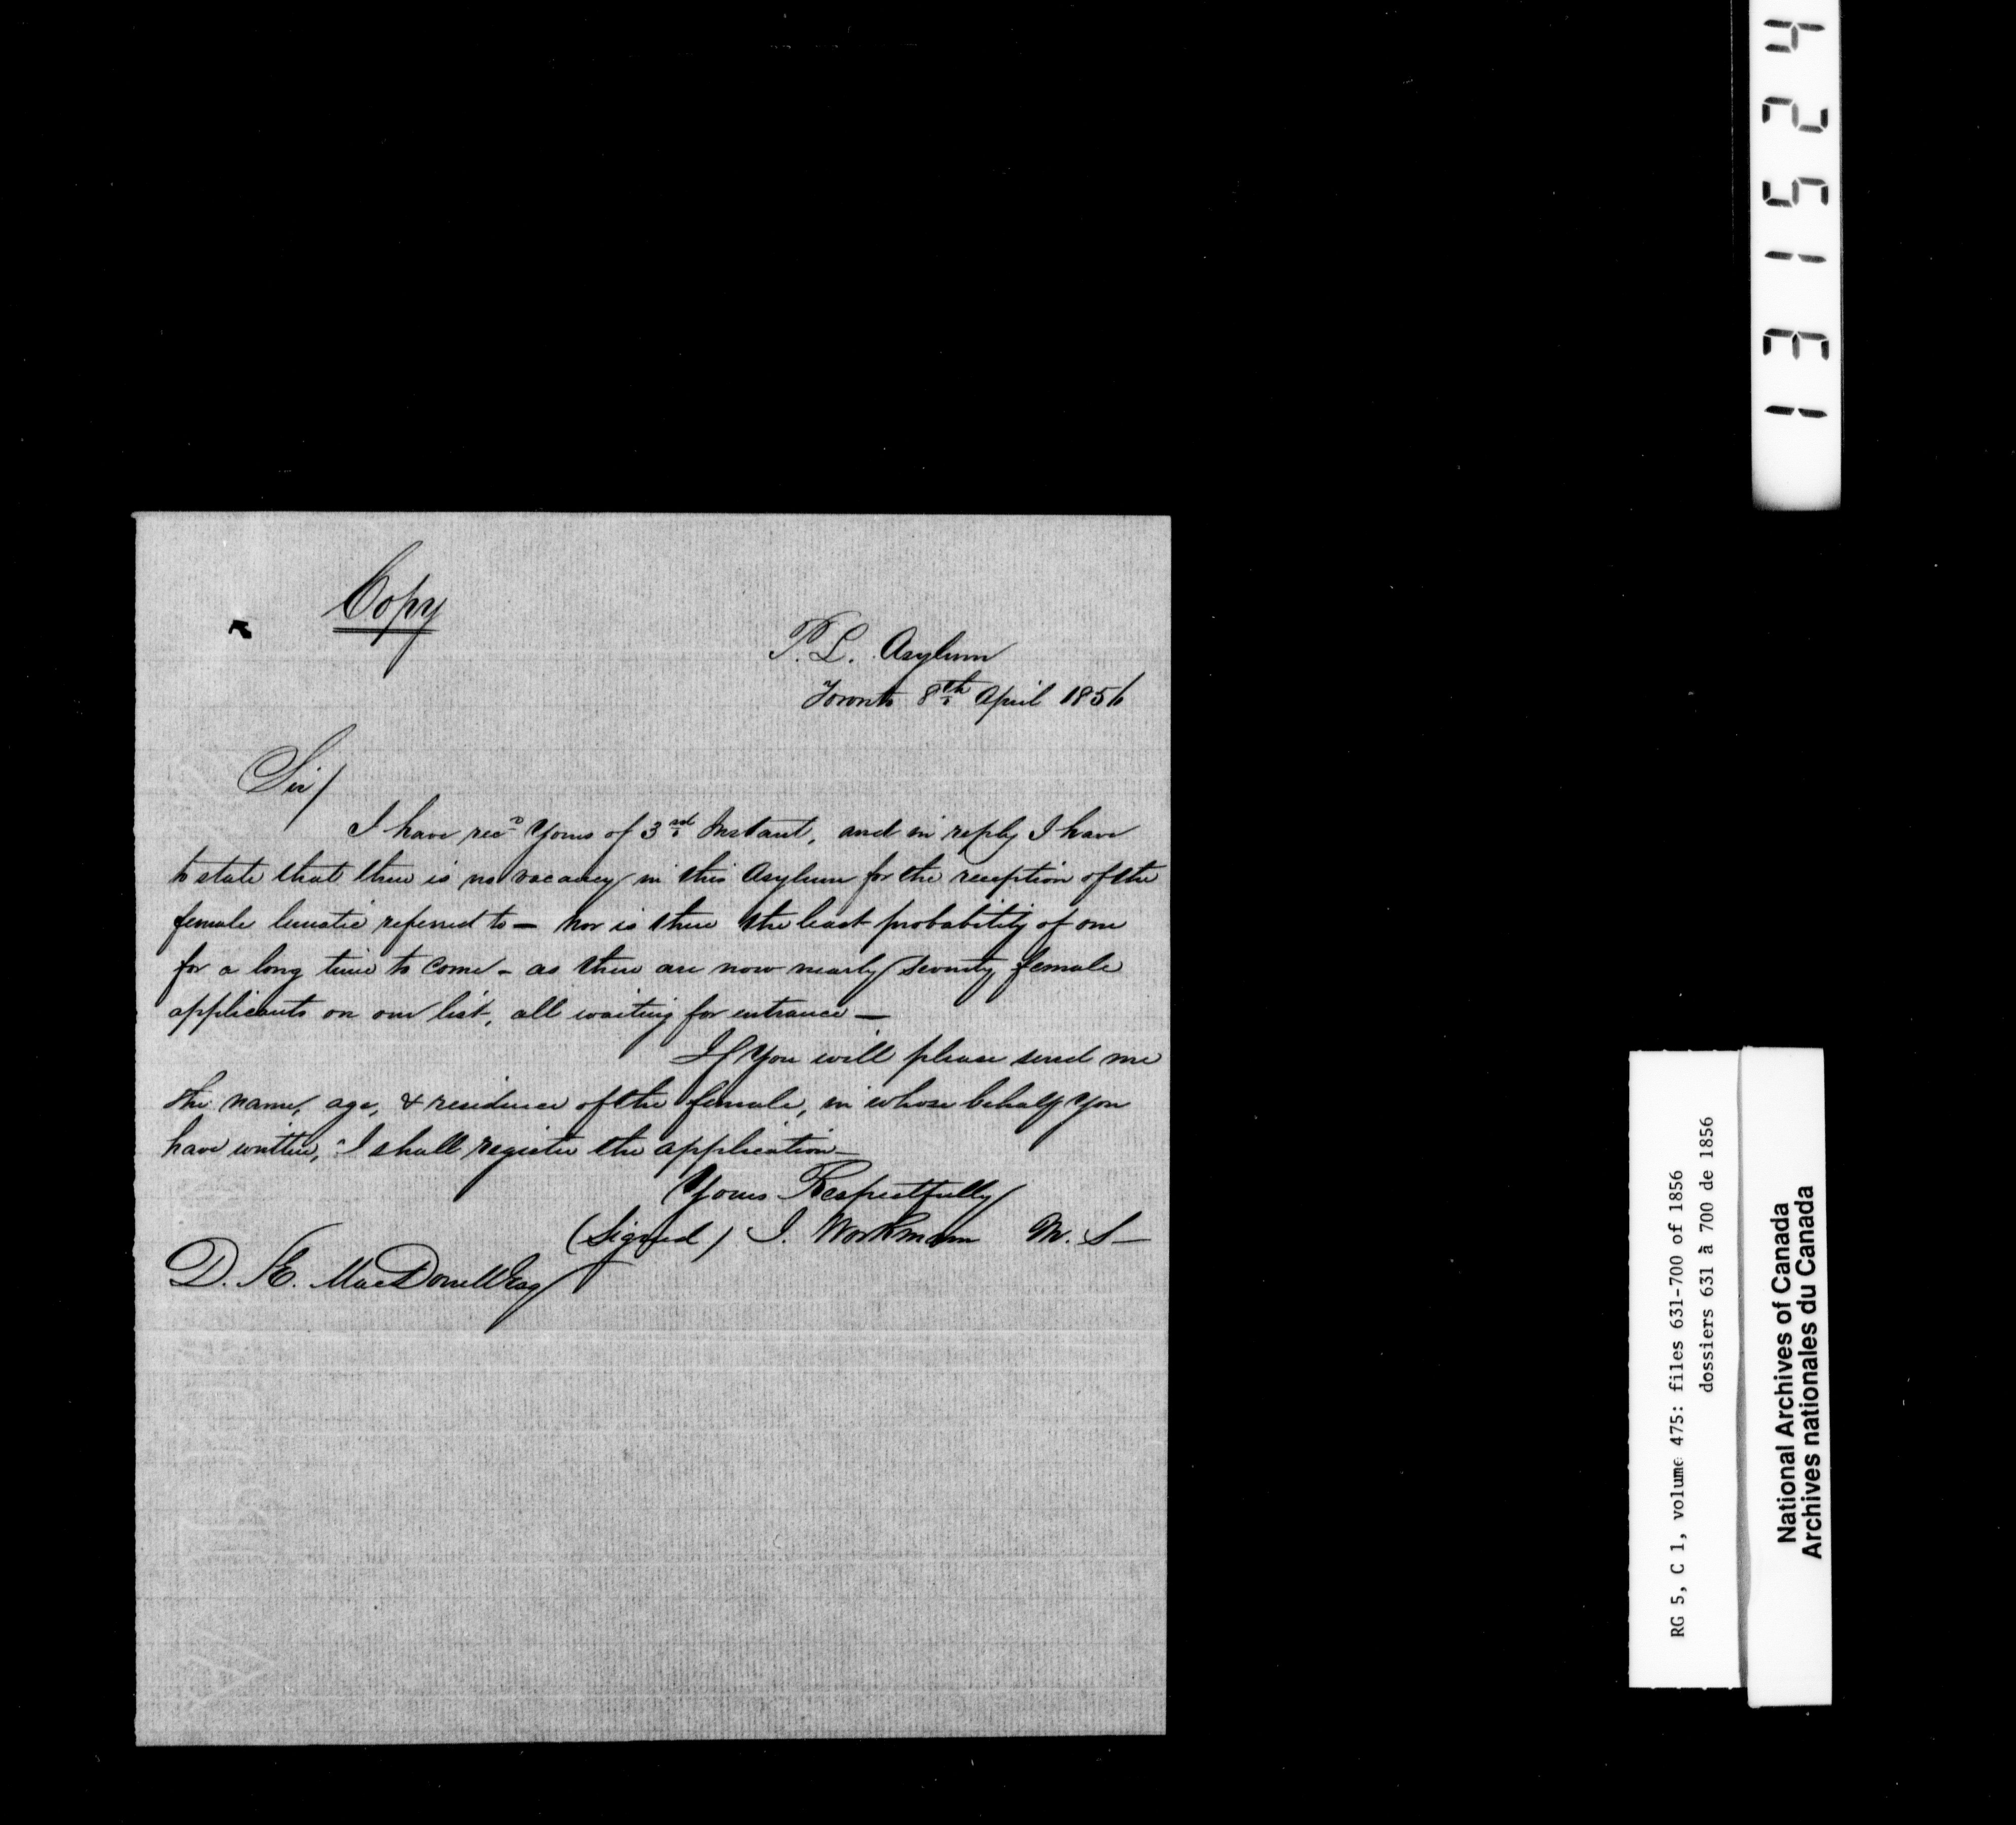 Copy
P. L. Asylum
Toronto 8th April 1856
Sir/
I have recd Yours of 3rd Instant, and in reply I have
to state that there is no vacancy in this Asylum for the reception of the
female lunatic referred to — Nor is there the least probability of one
for a long time to come - as there are now nearly seventy female
applicants on our list, all waiting for entrance —
If You will please send me
the name, age, & residence of the female, in whose behalf You
have written, I shall register the application —
Yours Respectfully
(Signed) J. Workman M. S —
D. Æ. MacDonell Esq
131524
RG 5, C 1, volume 475: files 631-700 of 1856
dossiers 631 à 700 de 1856
National Archives of Canada
Archives nationales du Canada